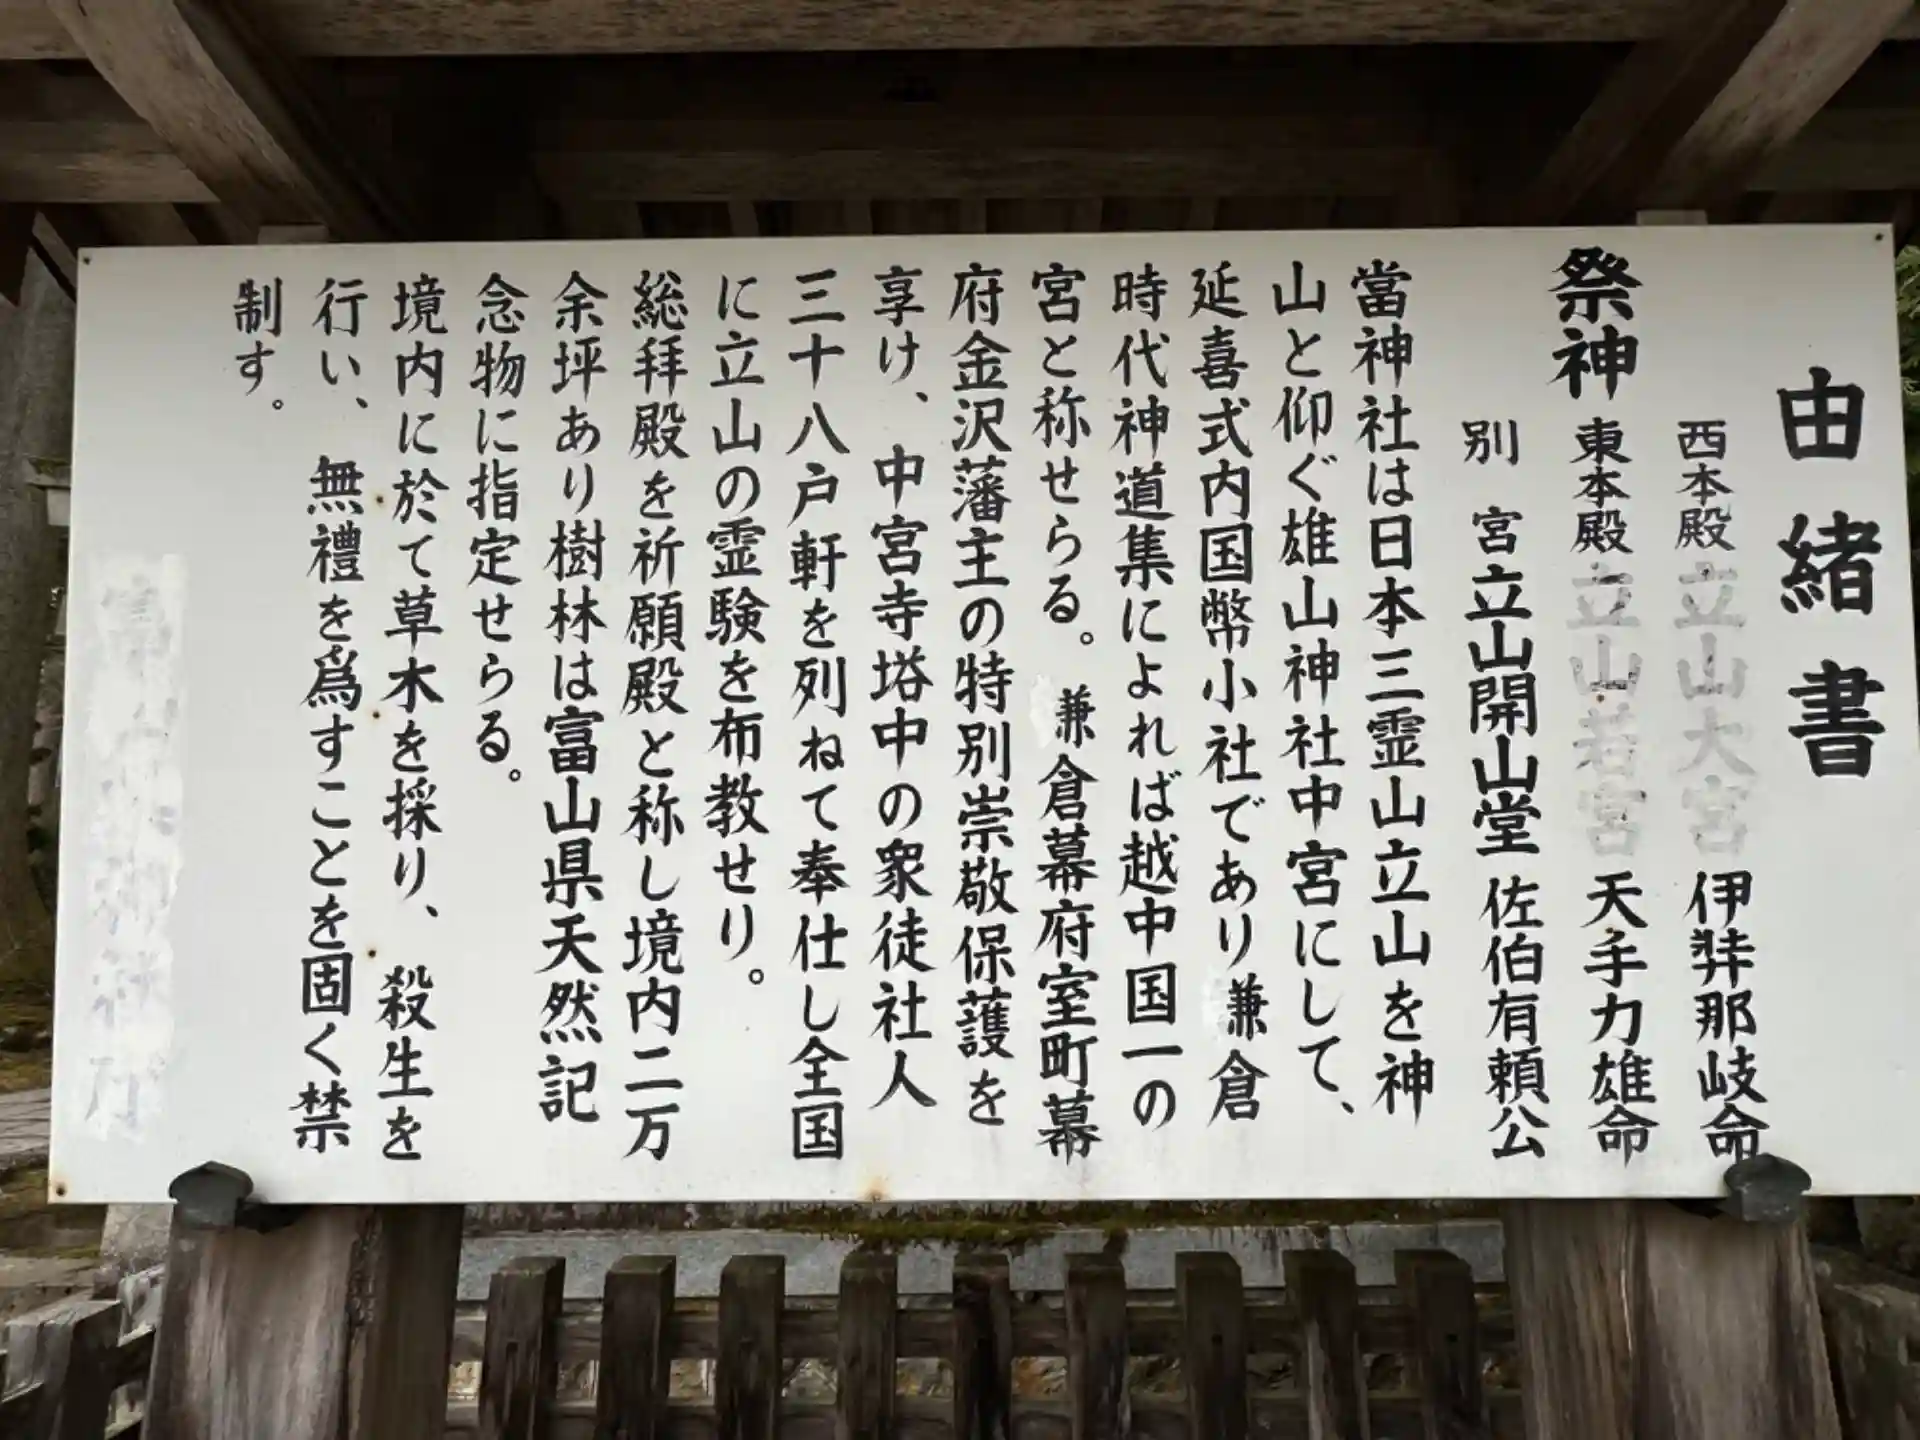 由緒書
西本殿 立山大宮 伊弉那岐命
祭神 東本殿 立山若宮 天手力雄命
別宮 立山開山堂 佐伯有頼公
當神社は日本三霊山立山を神
山と仰ぐ雄山神社中宮にして、
延喜式内国幣小社であり兼倉
時代神道集によれば越中国一の
宮と称せらる。兼倉幕府室町幕
府金沢藩主の特別崇敬保護を
享け、中宮寺塔中の衆徒社人
三十八戸軒を列ねて奉仕し全国
に立山の霊験を布教せり。
総拝殿を祈願殿と称し境内二万
余坪あり樹林は富山県天然記
念物に指定せらる。
境内に於て草木を採り、殺生を
行い、無禮を爲すことを固く禁
制す。